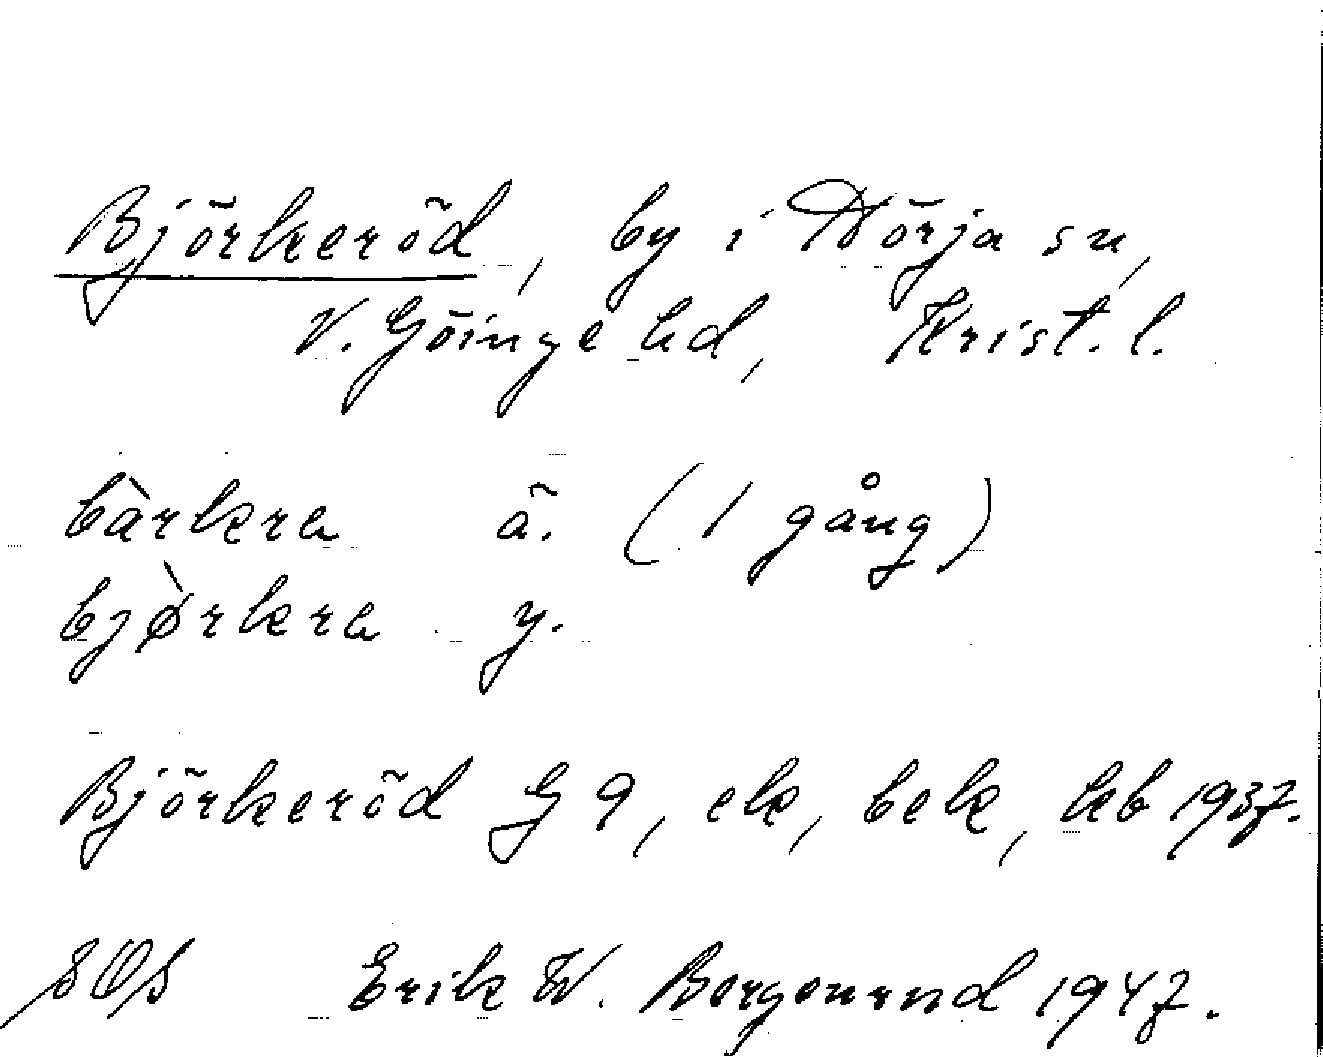 Björkeröd, by i Nörja sn,
V. Göinge hd, Krist. l.
bàrkra ä. (1 gång)
bjø̀rkra y.
Björkeröd G 9, ek, bek, kb 1937.
SOS Erik W. Bergenrund 1947.